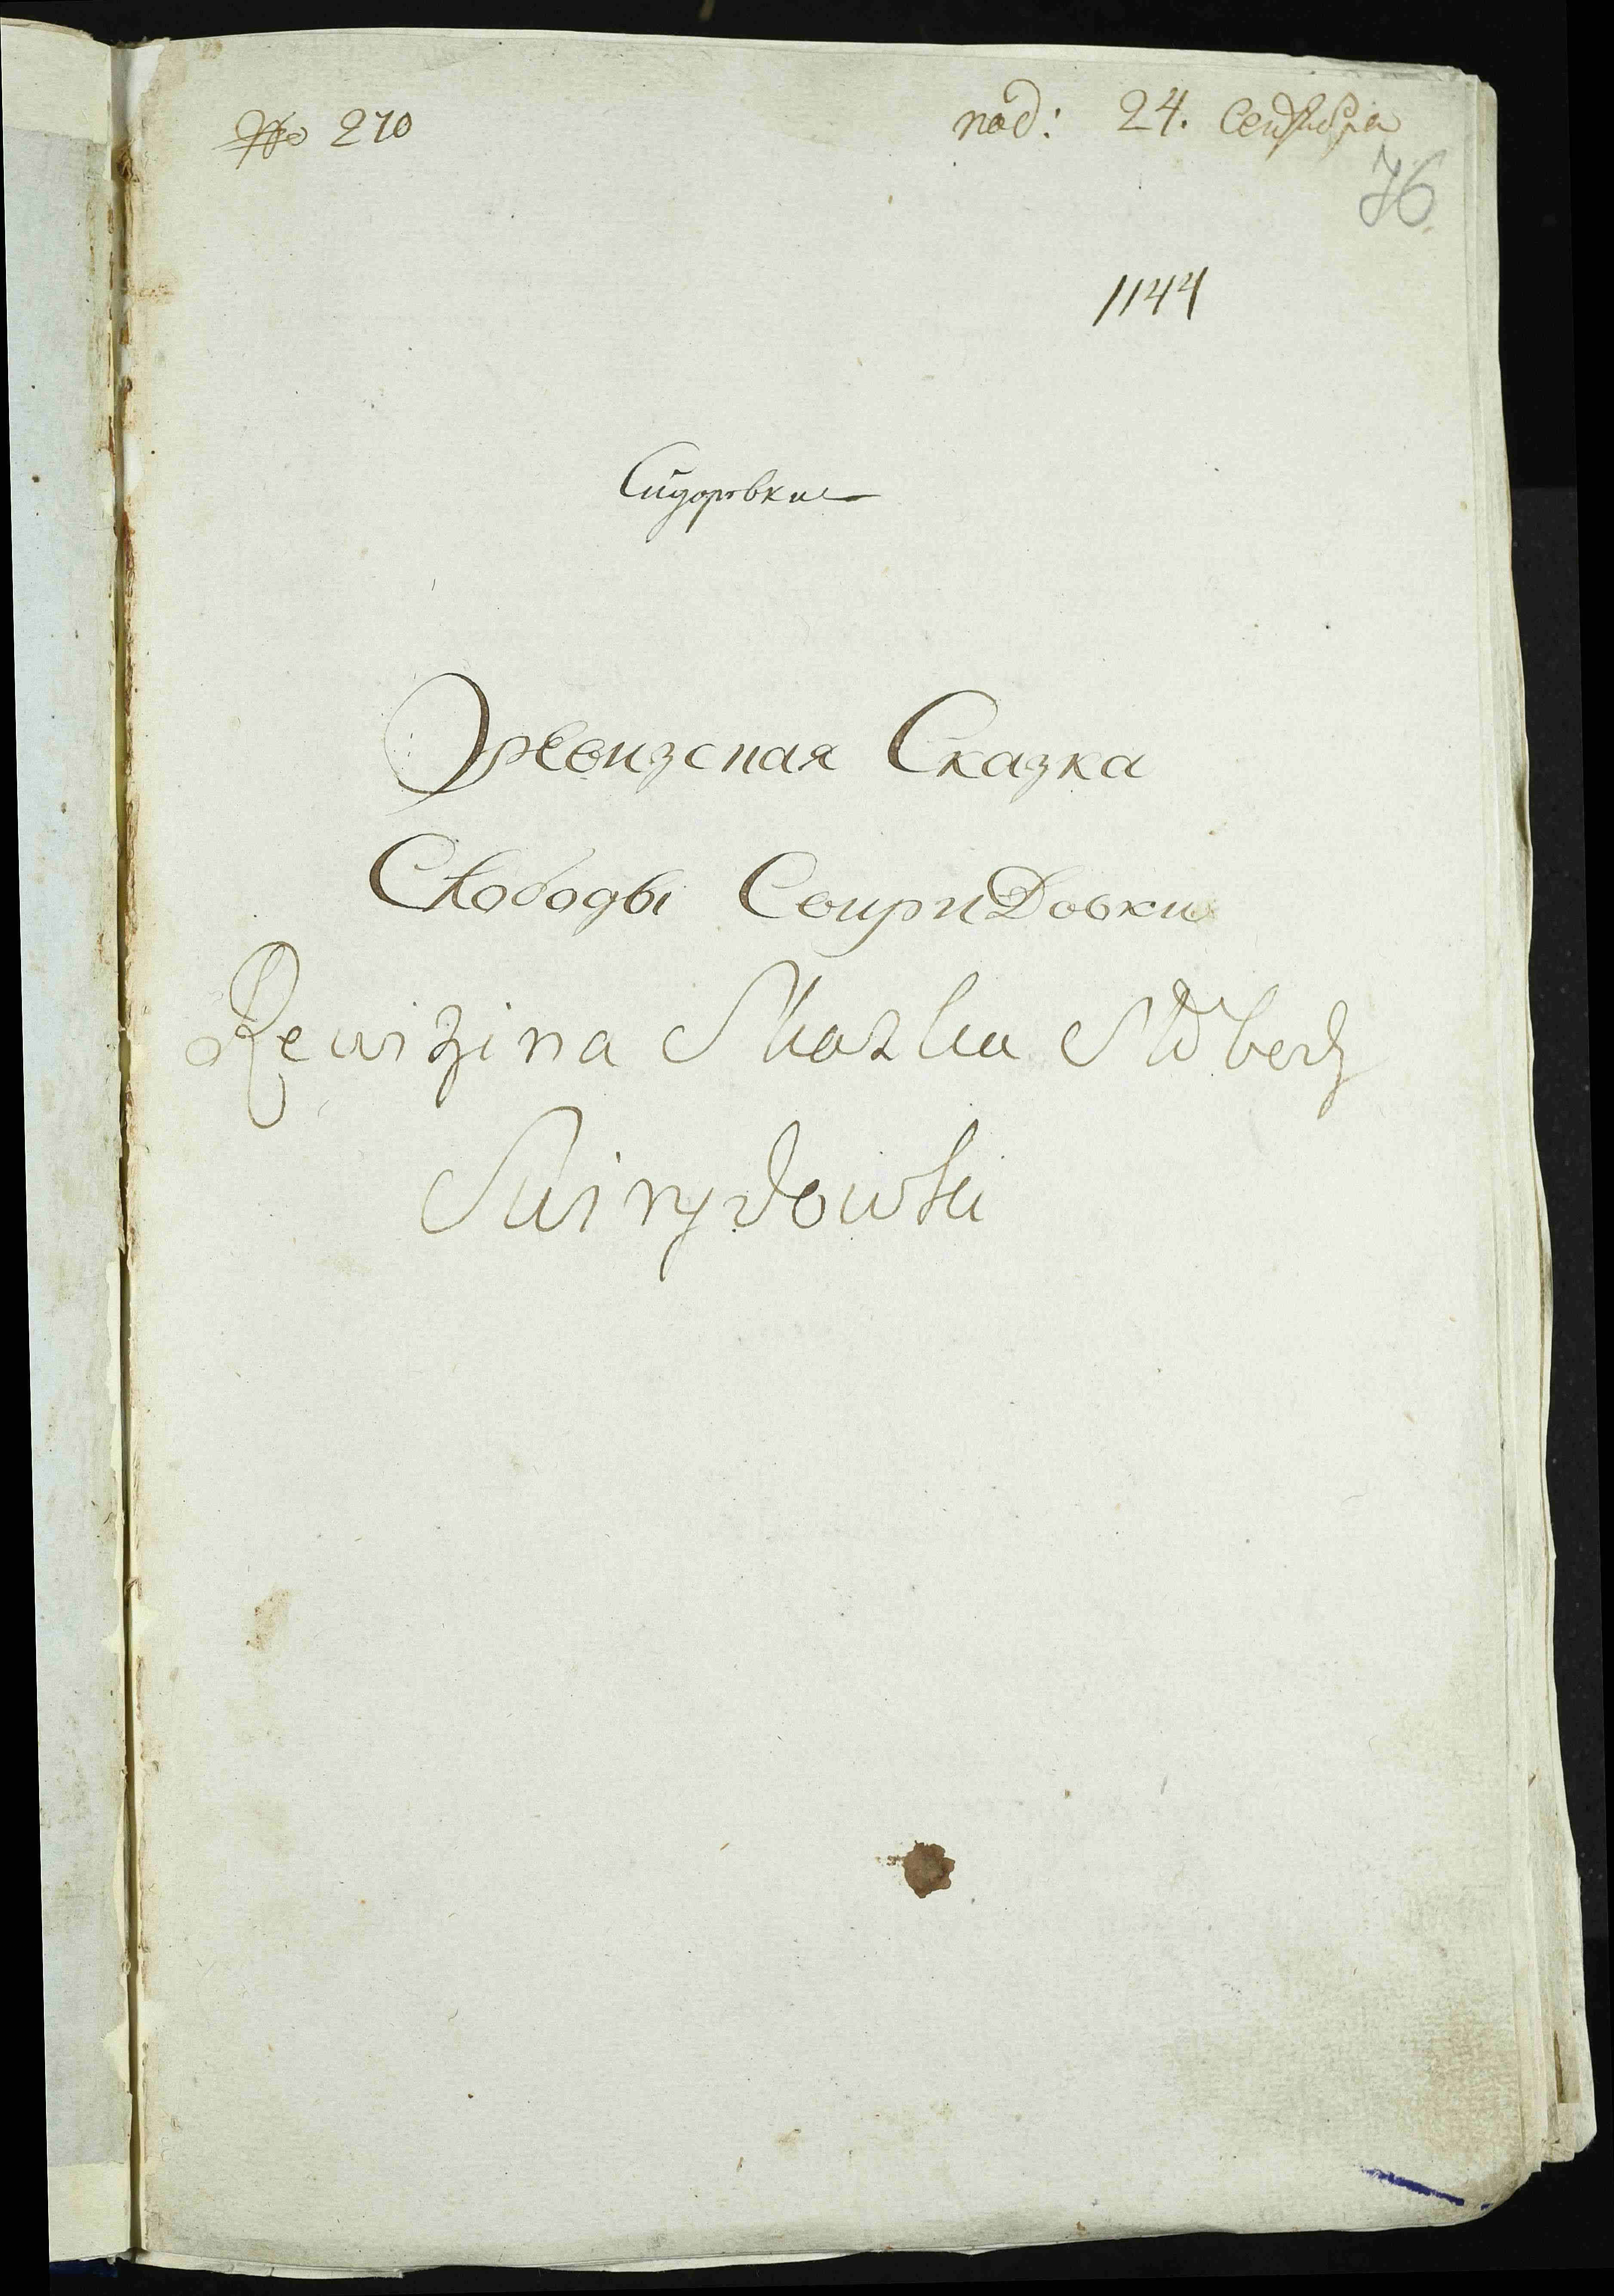 № 210
под: 24. Сентября
76
1144
Сидоровки
Ревизская Сказка
Слободы Свиридовки
Rewizina Skazka Słobody
Swirydowki